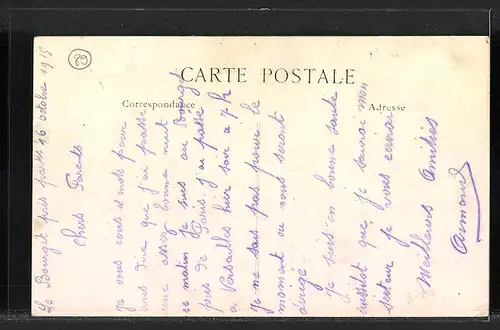 89
CARTE POSTALE
Correspondance
Adresse
Le Bourget près paris 16 octobre 1915
Chers Parents
Je vous écris 2 mots pour
vous dire que j'ai passé
une assez bonne nuit
ce matin je suis au Bourget
près de Paris. j'ai passé
a Versailles hier soir a 7 h
Je ne sais pas pour le
moment ou nous seront
dirigé
Je suis en bonne santé
aussitot que je saurai mon
secteur je vous ecrirai
Meilleurs Amitiés
Armand